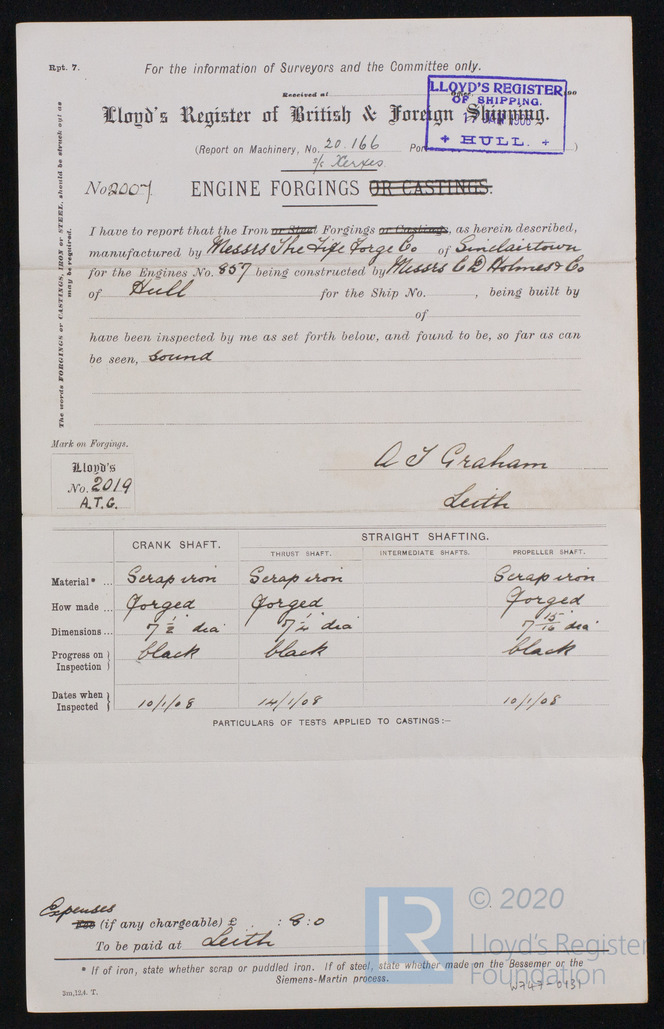 Rpt. 7.
For the information of Surveyors and the Committee only.
Received at
Lloyd's Register of British & Foreign Shipping.
LLOYD'S REGISTER
OF SHIPPING.
17 JAN 1908
+ HULL. +
(Report on Machinery, No. 20.166 Port )
s/s Xerxes
No 2007 ENGINE FORGINGS OR CASTINGS.
The words FORGINGS or CASTINGS, IRON or STEEL, should be struck out as
may be required.
I have to report that the Iron or Steel Forgings or Castings, as herein described,
manufactured by Messrs The Fife Forge Co of Sinclairtown
for the Engines No. 857 being constructed by Messrs C D Holmes & Co
of Hull for the Ship No. , being built by
of
have been inspected by me as set forth below, and found to be, so far as can
be seen, sound
Mark on Forgings.
Lloyd's
No. 2019
A.T.G.
A T Graham
Leith
CRANK SHAFT. STRAIGHT SHAFTING.
THRUST SHAFT. INTERMEDIATE SHAFTS. PROPELLER SHAFT.
Material* ... Scrap iron Scrap iron Scrap iron
How made ... Forged Forged Forged
Dimensions ... 7 1/2" dia 7 1/4" dia 7 15/16" dia
Progress on Inspection } black black black
Dates when Inspected } 10/1/08 14/1/08 10/1/08
PARTICULARS OF TESTS APPLIED TO CASTINGS:—
Expenses
Fee (if any chargeable) £ : 8 : 0
To be paid at Leith
* If of iron, state whether scrap or puddled iron. If of steel, state whether made on the Bessemer or the
Siemens-Martin process.
3m,12,4. T.
W747-0131
LR
© 2020
Lloyd's Register
Foundation